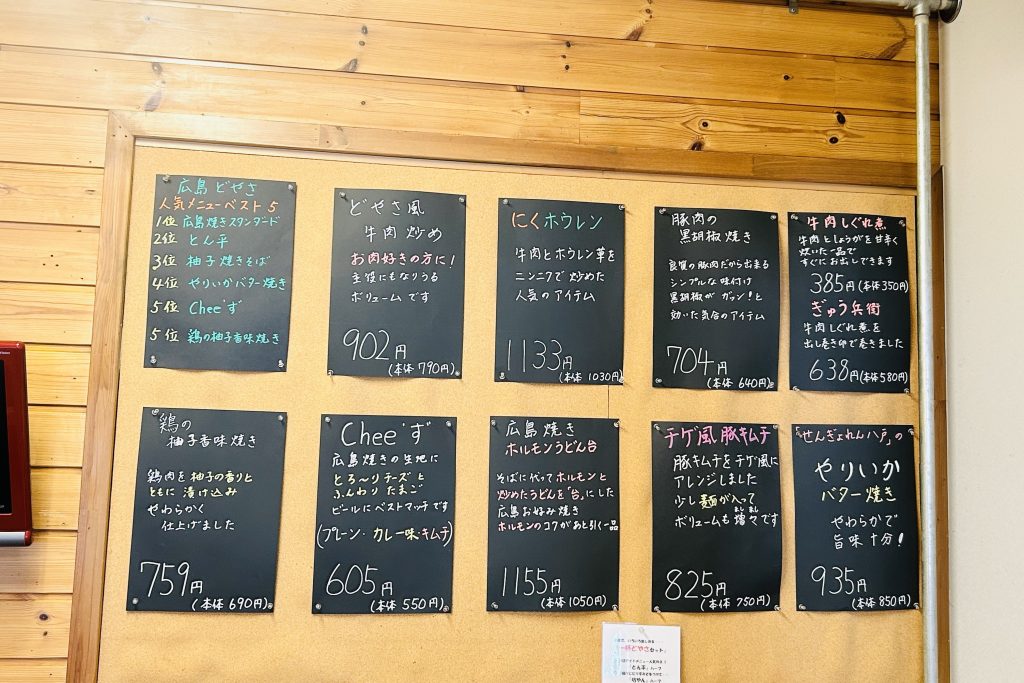 広島 どやさ
人気メニューベスト5
1位 広島焼きスタンダード
2位 とん平
3位 柚子焼きそば
4位 やりいかバター焼き
5位 Chee'ず
5位 鶏の柚子香味焼き
どやさ風
牛肉炒め
お肉好きの方に!
主役にもなりうる
ボリュームです
902円
(本体 790円)
にくホウレン
牛肉とホウレン草を
ニンニクで炒めた
人気のアイテム
1133円
(本体 1030円)
豚肉の
黒胡椒焼き
良質の豚肉だから出来る
シンプルな味付け
黒胡椒がガッン!と
効いた気合のアイテム
704円
(本体 640円)
牛肉しぐれ煮
牛肉としょうがを甘辛く
炊いた一品で
すぐにお出しできます
385円(本体350円)
ぎゅう兵衛
牛肉しぐれ煮を
出し巻き卵で巻きました
638円(本体580円)
鶏の
柚子香味焼き
鶏肉を柚子の香りと
ともに漬け込み
やわらかく
仕上げました
759円
(本体 690円)
Chee'ず
広島焼きの生地に
とろ～りチーズと
ふんわりたまご
ビールにベストマッチです
(プレーン・カレー味・キムチ)
605円
(本体 550円)
広島焼き
ホルモンうどん台
そばに代わってホルモンと
炒めたうどんを「台」にした
広島お好み焼き
ホルモンのコクがあと引く一品
1155円
(本体1050円)
チゲ風豚キムチ
豚キムチをチゲ風に
アレンジしました
少し麺が入って
ボリュームも増々です
ましまし
825円
(本体 750円)
「せんぎょれん八戸」の
やりいか
バター焼き
やわらかで
旨味十分!
935円
(本体850円)